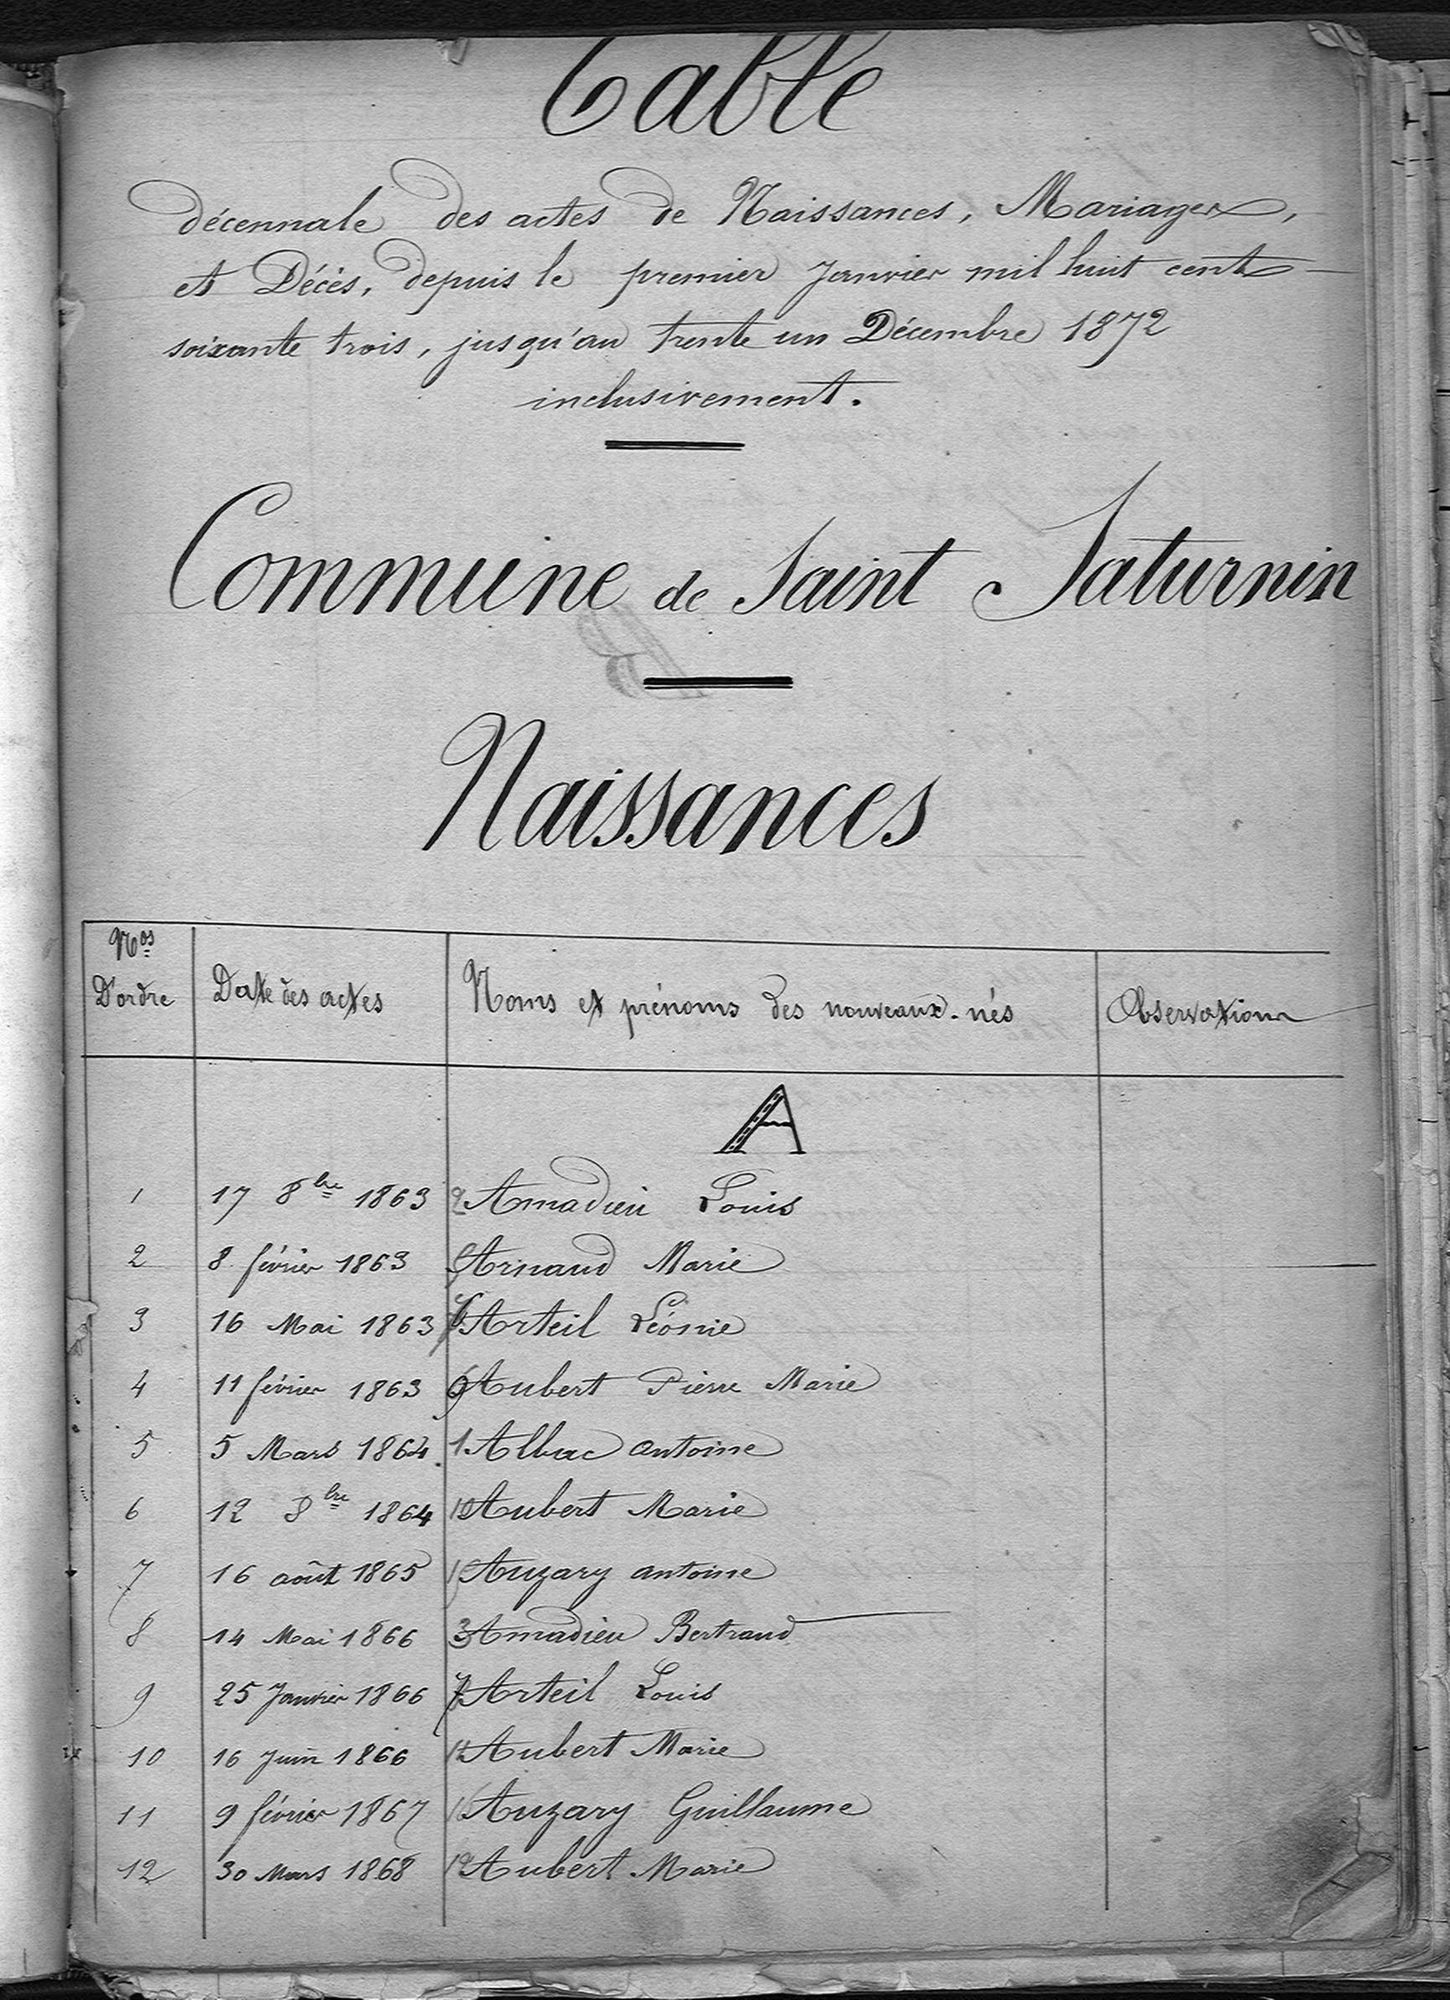 Table
décennale des actes de Naissances, Mariages,
et Décès, depuis le premier Janvier mil huit cent
soixante trois, jusqu'au trente un Décembre 1872
inclusivement.
Commune de Saint Saturnin
Naissances
Nos D'ordre Date des actes Noms et prénoms des nouveaux-nés Observations
A
1 17 8bre 1863 2 Amadieu Louis
2 8 février 1863 Arnaud Marie
3 16 Mai 1863 Arteil Léonie
4 11 février 1863 9 Aubert Pierre Marie
5 5 Mars 1864 1 Albac antoine
6 12 8bre 1864 10 Aubert Marie
7 16 août 1865 Auzary antoine
8 14 Mai 1866 3 Amadieu Bertrand
9 25 Janvier 1866 7 Arteil Louis
10 16 Juin 1866 11 Aubert Marie
11 9 février 1867 Auzary Guillaume
12 30 Mars 1868 12 Aubert Marie